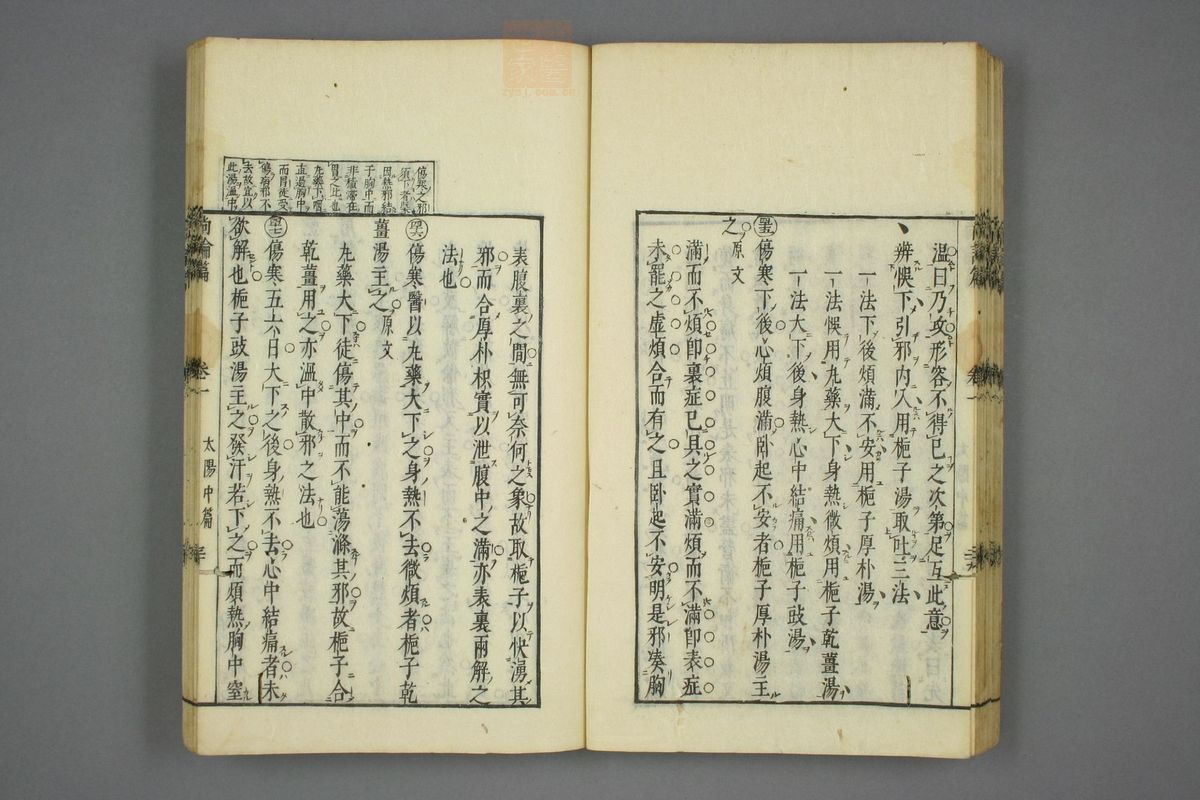 溫曰乃攻形容不得已之次第足互此意
辨悞下引邪内入用梔子湯取吐三法
一法下後煩滿不安用梔子厚朴湯
一法悞用丸藥大下身熱微煩用梔子乾薑湯
一法大下後身熱心中結痛用梔子豉湯
傷寒下後心煩腹滿卧起不安者梔子厚朴湯主
之原文
滿而不煩卽裏症已具之實滿煩而不滿卽表症
未罷之虛煩合而有之且卧起不安明是邪湊胸
表腹裏之間無可奈何之象故取梔子以快湧其
邪而合厚朴枳實以泄腹中之滿亦表裏兩解之
法也
傷寒醫以丸藥大下之身熱不去微煩者梔子乾
薑湯主之原文
丸藥大下徒傷其中而不能蕩滌其邪故梔子合
乾薑用之亦溫中散邪之法也
傷寒五六日大下之後身熱不去心中結痛者未
欲解也梔子豉湯主之發汗若下之而煩熱胸中窒
傷寒之邪
須下者
因熱邪結
于胸中而
非積滯在
胃之也
丸藥下
直過胸中
而胃徒受
傷邪不
去故宜以
此湯溫中
尚論篇
卷一
太陽中篇